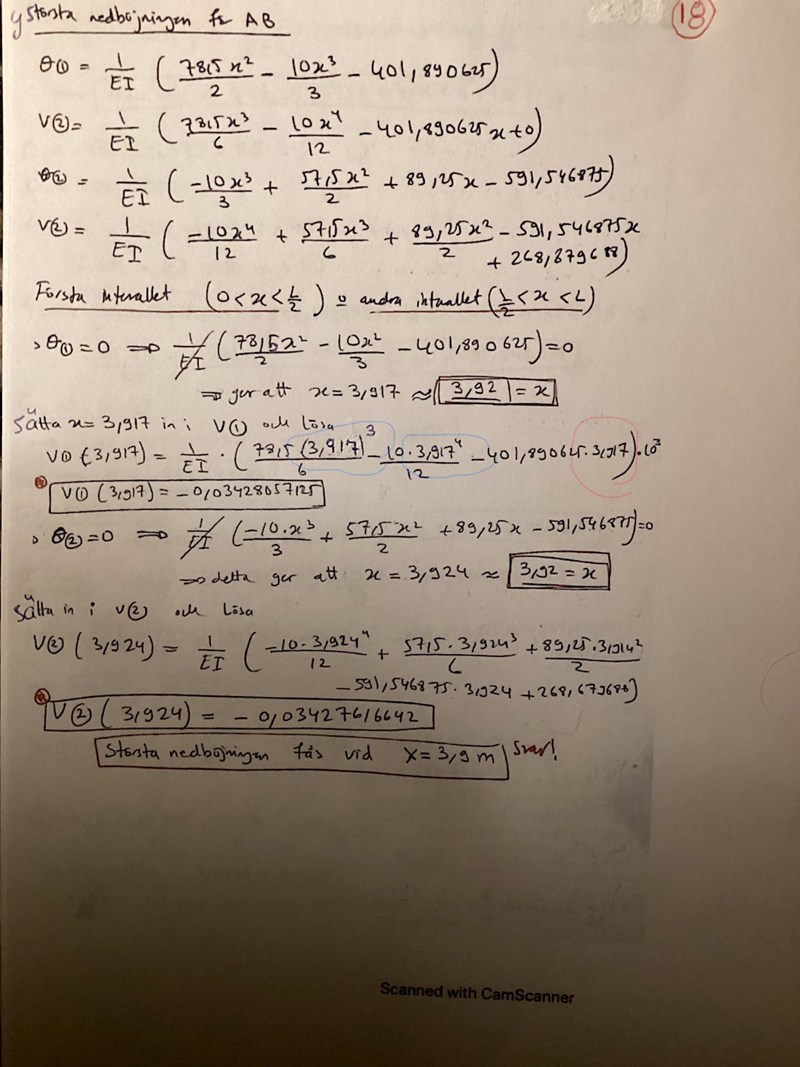 Största nedböjningen för AB
18
θ① = 1/EI ( 78,5x²/2 − 10x³/3 − 401,890625)
V②= 1/EI ( 78,5x³/6 − 10x⁴/12 − 401,890625x+0)
θ② = 1/EI ( −10x³/3 + 57,5x²/2 + 89,25x − 591,546875)
V② = 1/EI ( −10x⁴/12 + 57,5x³/6 + 89,25x²/2 − 591,546875x
+ 268,879688)
Första intervallet (0<x<L/2) o andra intuallet (L/2<x<L)
θ① =0 ⇒ 1/EI ( 78,5x²/2 − 10x²/3 − 401,890625)=0
⇒ ger att x=3,917 ≈ 3,92 = x
Sätta x= 3,917 in i V① och lösa
V① (3,917) = 1/EI · ( 78,5 (3,917)³/6 − 10·3,917⁴/12 − 401,890625·3,917)·10³
V① (3,917) = −0,03428057125
θ② =0 ⇒ 1/EI ( −10·x³/3 + 57,5x²/2 + 89,25x − 591,546875)=0
⇒ detta ger att x = 3,924 ≈ 3,92 = x
Sätta in i V② och lösa
V② ( 3,924) = 1/EI ( −10·3,924⁴/12 + 57,5·3,924³/6 + 89,25·3,914²/2
− 591,546875·3,924 + 268,679688)
V② ( 3,924) = −0,03427616642
Största nedböjningen fås vid X= 3,9 m Svar!
Scanned with CamScanner